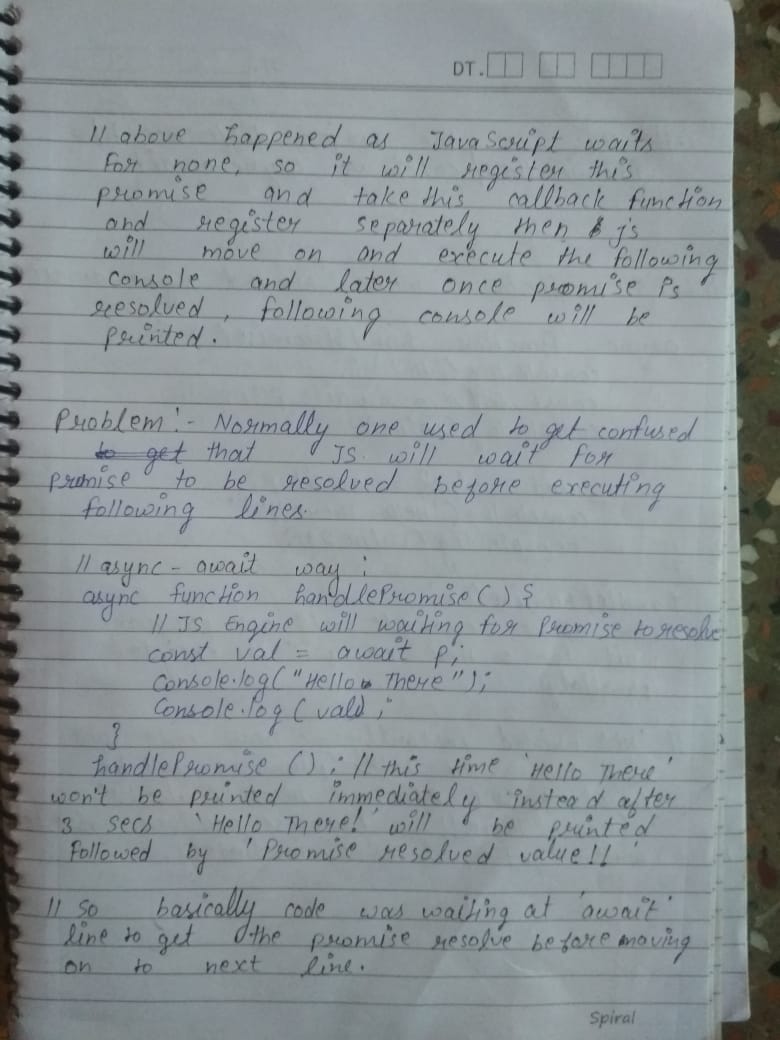 DT.
// above happened as JavaScript waits
for none, so it will register this
promise and take this callback function
and register separately then js
will move on and execute the following
console and later once promise is
resolved, following console will be
printed.
Problem:- Normally one used to get confused
to get that JS will wait for
promise to be resolved before executing
following lines.
// async - await way :
async function handlePromise () {
// JS Engine will waiting for Promise to resolve
const val = await p;
Console.log("Hello There");
Console.log (val);
}
handlePromise () ; // this time 'Hello There'
won't be printed immediately instead after
3 secs 'Hello There!' will be printed
followed by 'Promise resolved value!!'
// So basically code was waiting at 'await'
line to get the promise resolve before moving
on to next line.
Spiral